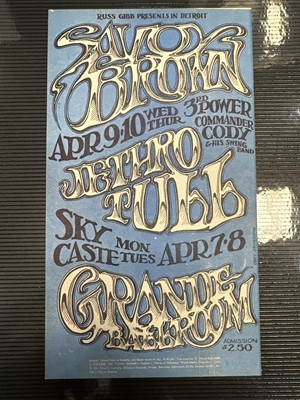 RUSS GIBB PRESENTS IN DETROIT
SAVOY
BROWN
APR 9·10 WED THUR
3RD POWER
COMMANDER
CODY
& HIS SWING BAND
JETHRO
TULL
SKY
CASTE MON TUES APR 7·8
GRANDE
BALLROOM
ADMISSION
$2.50